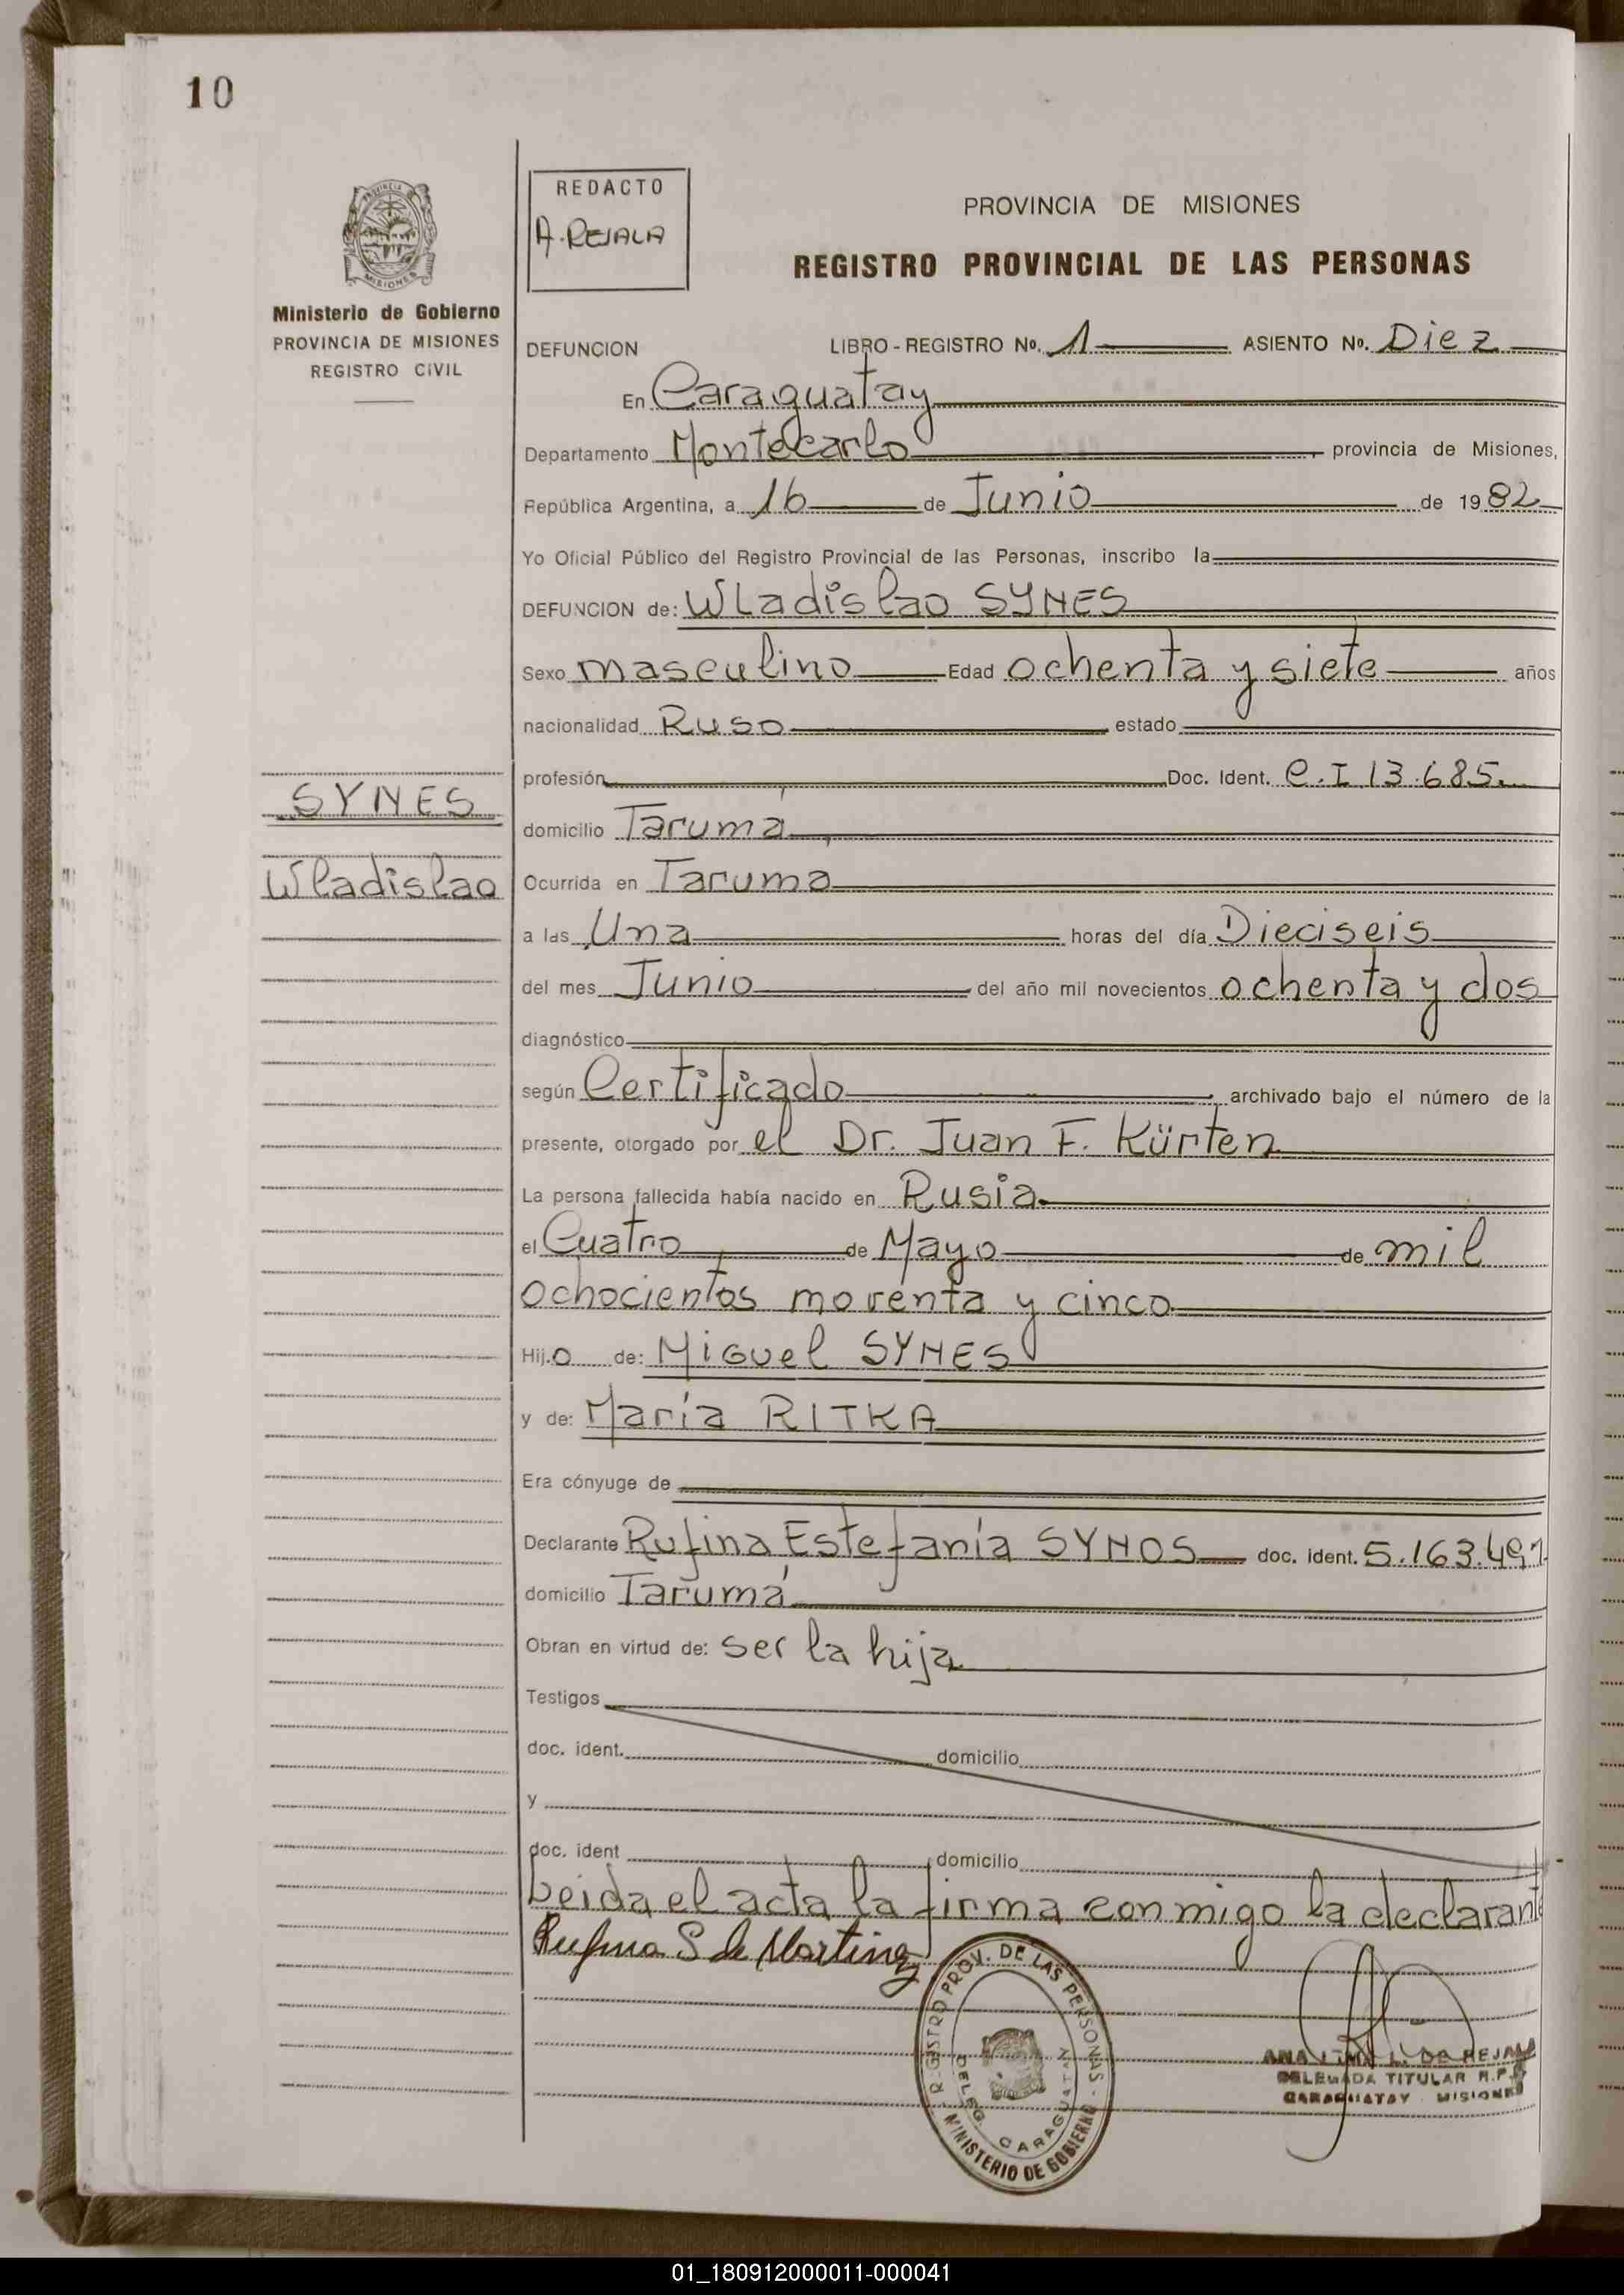 10
PROVINCIA
MISIONES
Ministerio de Gobierno
PROVINCIA DE MISIONES
REGISTRO CIVIL
REDACTO
A. REJALA
PROVINCIA DE MISIONES
REGISTRO PROVINCIAL DE LAS PERSONAS
DEFUNCION LIBRO - REGISTRO Nº. 1 ASIENTO Nº. Diez
En Caraguatay
Departamento Montecarlo, provincia de Misiones,
República Argentina, a 16 de Junio de 1982
Yo Oficial Público del Registro Provincial de las Personas, inscribo la
DEFUNCION de: Wladislao SYNES
Sexo masculino Edad ochenta y siete años
nacionalidad Ruso estado
profesión Doc. Ident. C.I 13.685
SYNES
domicilio Taruma
Wladislao
Ocurrida en Taruma
a las Una horas del día Dieciseis
del mes Junio del año mil novecientos ochenta y dos
diagnóstico
según Certificado archivado bajo el número de la
presente, otorgado por el Dr. Juan F. Kürten
La persona fallecida había nacido en Rusia
el Cuatro de Mayo de mil
ochocientos noventa y cinco
Hijo de: Miguel SYNES
y de: María RITKA
Era cónyuge de
Declarante Rufina Estefanía SYNOS doc. ident. 5.163.491
domicilio Tarumá
Obran en virtud de: ser la hija
Testigos
doc. ident. domicilio
y
doc. ident domicilio
Leida el acta la firma conmigo la declarante
Rufina S de Martinez
REGISTRO PROV. DE LAS PERSONAS - MINISTERIO DE GOBIERNO
DELEG. CARAGUATAY
ANA L. DE REJALA
DELEGADA TITULAR R.P.P
CARAGUATAY MISIONES
01_180912000011-000041